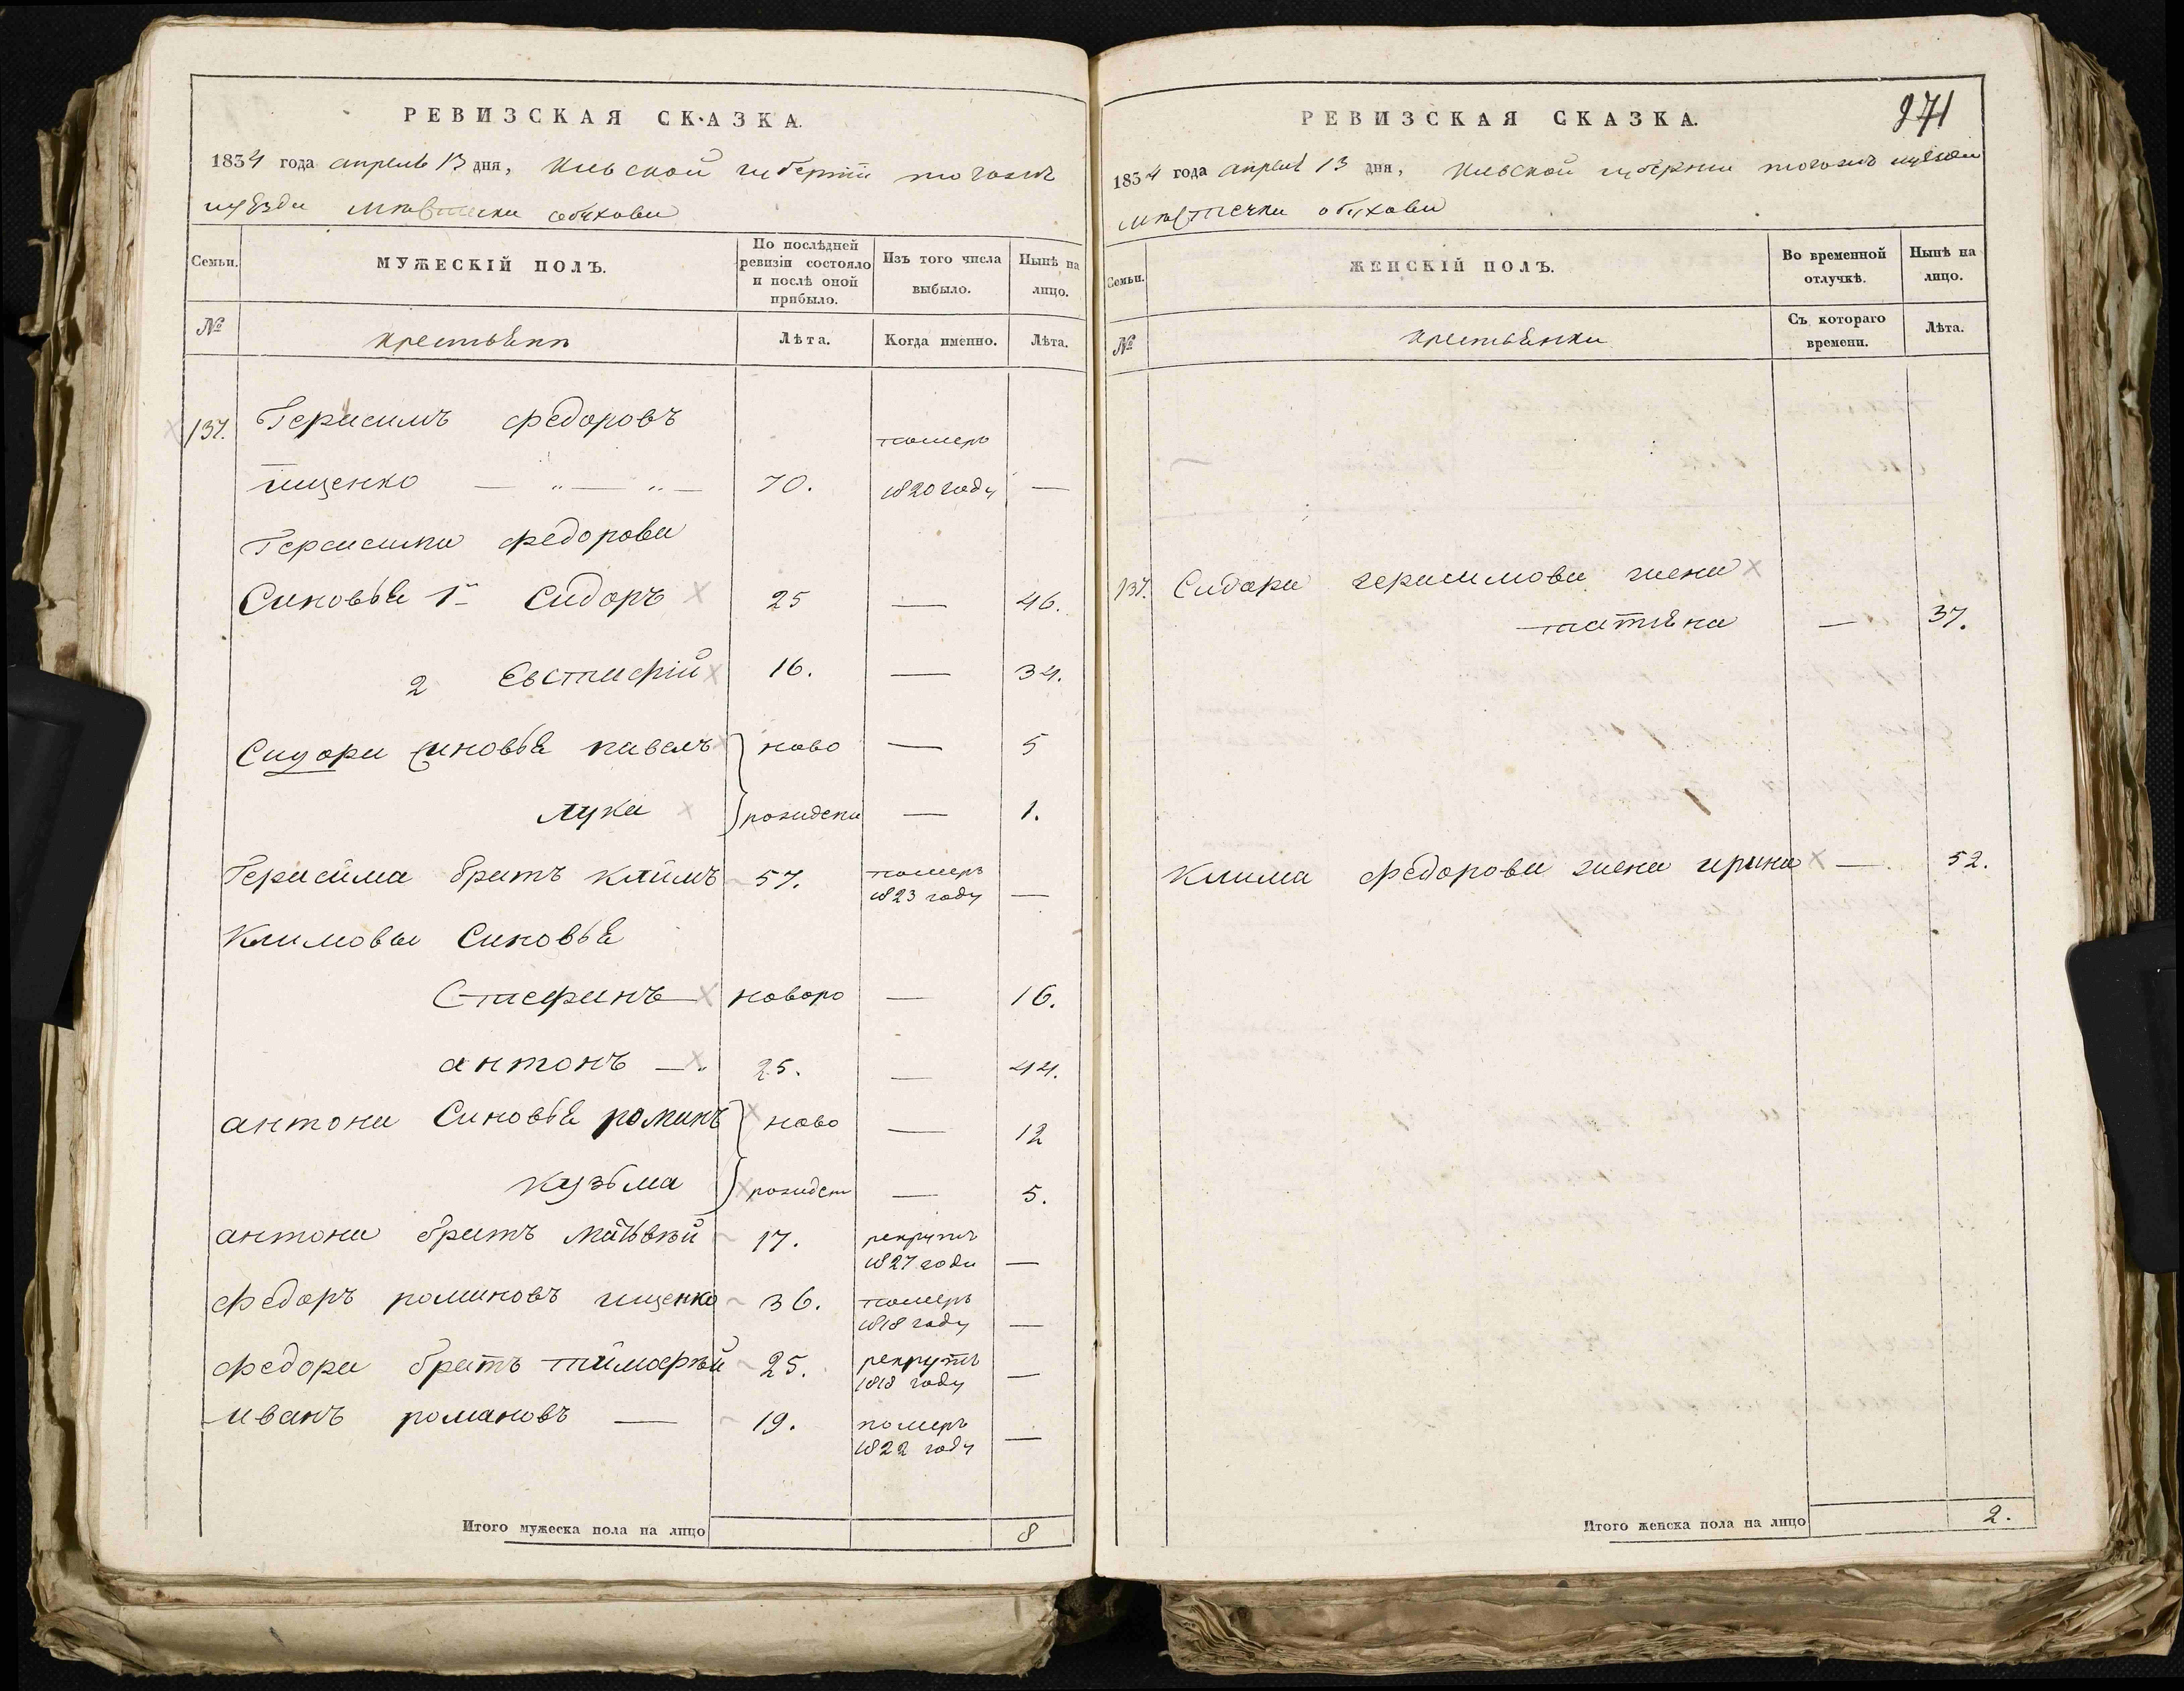 РЕВИЗСКАЯ СКАЗКА.
1834 года апреля 13 дня, Киевской губернии тогожъ
уѣзда мѣстечка обухова
Семьи.
МУЖЕСКІЙ ПОЛЪ.
По послѣдней ревизіи состояло и послѣ оной прибыло.
Изъ того числа выбыло.
Нынѣ на лицо.
№
крестьяне
Лѣта.
Когда именно.
Лѣта.
137. Герасимъ федоровъ
ищенко — „ — „ — 70. померъ 1820 году —
Герасима федорова
Синовья 1й Сидоръ 25 — 46.
2 Евстафій 16. — 34.
Сидора синовья павелъ ново — 5
лука рожидени — 1.
Герасима братъ климъ 57. померъ 1823 году —
Климовы Синовья
Стефанъ новоро — 16.
антонъ — 25. — 44.
антона Синовья романъ ново — 12
кузьма рожиден — 5.
антона братъ матьвѣй 17. рекрутъ 1827 году —
федоръ романовъ ищенко 36. померъ 1818 году —
федора братъ тимофѣй 25. рекрутъ 1818 году —
иванъ романовъ — 19. померъ 1822 году —
Итого мужеска пола на лицо 8
971
РЕВИЗСКАЯ СКАЗКА.
1834 года апреля 13 дня, Киевской губернии тогожъ уѣзда
мѣстечка обухова
Семьи.
ЖЕНСКІЙ ПОЛЪ.
Во временной отлучкѣ.
Нынѣ на лицо.
№
крестьянки
Съ котораго времени.
Лѣта.
137. Сидора герасимова жена
татяна — 37.
Клима федорова жена ирина — 52.
Итого женска пола на лицо 2.